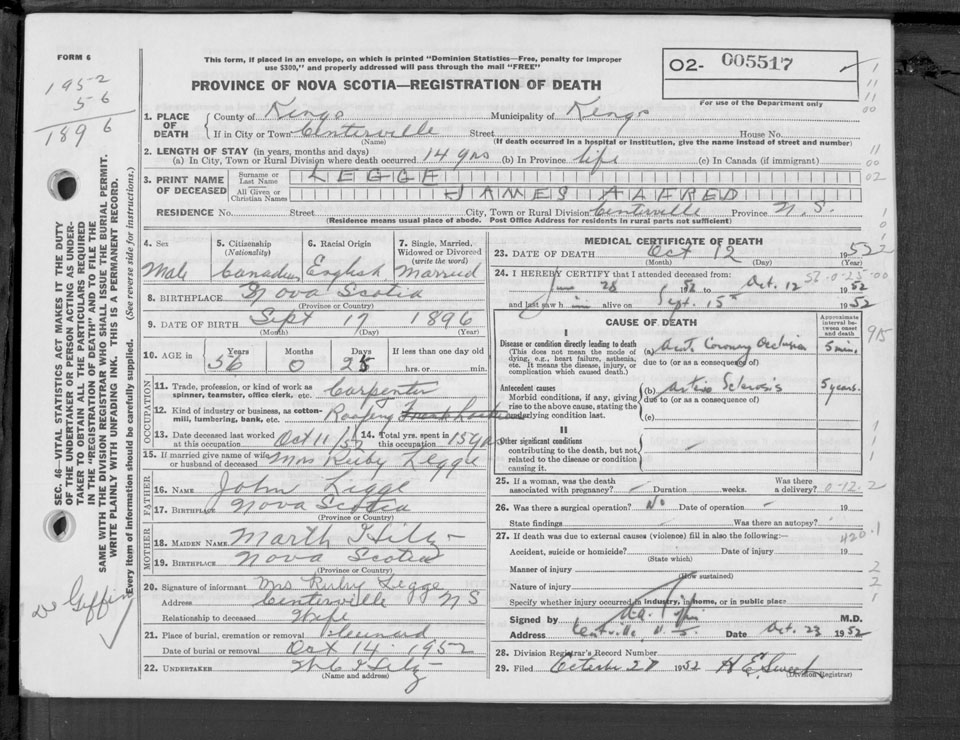 FORM 6
This form, if placed in an envelope, on which is printed "Dominion Statistics—Free, penalty for improper
use $300," and properly addressed will pass through the mail "FREE"
PROVINCE OF NOVA SCOTIA—REGISTRATION OF DEATH
02- 005517
For use of the Department only
1952
56
1896
SEC. 46—VITAL STATISTICS ACT MAKES IT THE DUTY
OF THE UNDERTAKER OR PERSON ACTING AS UNDER-
TAKER TO OBTAIN ALL THE PARTICULARS REQUIRED
IN THE "REGISTRATION OF DEATH" AND TO FILE THE
SAME WITH THE DIVISION REGISTRAR WHO SHALL ISSUE THE BURIAL PERMIT.
WRITE PLAINLY WITH UNFADING INK. THIS IS A PERMANENT RECORD.
Every item of information should be carefully supplied. (See reverse side for instructions.)
Dr Giffin
1. PLACE OF DEATH County of Kings Municipality of Kings
If in City or Town Centerville Street House No.
(Name) (If death occurred in a hospital or institution, give the name instead of street and number)
2. LENGTH OF STAY (in years, months and days)
(a) In City, Town or Rural Division where death occurred 14 yrs (b) In Province life (c) In Canada (if immigrant)
3. PRINT NAME OF DECEASED Surname or Last Name LEGGE
All Given or Christian Names JAMES ALFRED
RESIDENCE No. Street City, Town or Rural Division Centerville Province N.S.
(Residence means usual place of abode. Post Office Address for residents in rural parts not sufficient)
4. Sex 5. Citizenship (Nationality) 6. Racial Origin 7. Single, Married, Widowed or Divorced (write the word)
Male Canadian English Married
8. BIRTHPLACE Nova Scotia
(Province or Country)
9. DATE OF BIRTH Sept 17 1896
(Month) (Day) (Year)
10. AGE in Years Months Days If less than one day old
56 0 25 hrs. or min.
OCCUPATION
11. Trade, profession, or kind of work as spinner, teamster, office clerk, etc. Carpenter
12. Kind of industry or business, as cotton-mill, tumbering, bank, etc. Roofing
13. Date deceased last worked at this occupation Oct 11/52 14. Total yrs. spent in this occupation 15 yrs
15. If married give name of wife or husband of deceased Mrs Ruby Legge
FATHER
16. NAME John Legge
17. BIRTHPLACE Nova Scotia
(Province or Country)
MOTHER
18. MAIDEN NAME Marth Hilz
19. BIRTHPLACE Nova Scotia
(Province or Country)
20. Signature of informant Mrs Ruby Legge
Address Centerville N S
Relationship to deceased Wife
21. Place of burial, cremation or removal
Date of burial or removal Oct 14 1952
22. UNDERTAKER Hiltz
(Name and address)
MEDICAL CERTIFICATE OF DEATH
23. DATE OF DEATH Oct 12 1952
(Month) (Day) (Year)
24. I HEREBY CERTIFY that I attended deceased from:
June 28 1952 to Oct. 12 1952
and last saw him alive on Sept. 15th 1952
CAUSE OF DEATH
Approximate interval between onset and death
I
Disease or condition directly leading to death
(This does not mean the mode of dying, e.g., heart failure, asthenia, etc. It means the disease, injury, or complication which caused death.)
(a) Acute Coronary Occlusion 5 min.
due to (or as a consequence of)
Antecedent causes
Morbid conditions, if any, giving rise to the above cause, stating the underlying condition last.
(b) Arterio Sclerosis 5 years.
due to (or as a consequence of)
(c)
II
Other significant conditions
contributing to the death, but not related to the disease or condition causing it.
915
25. If a woman, was the death associated with pregnancy? Duration weeks. Was there a delivery? 0-12.2
26. Was there a surgical operation? No Date of operation 19
State findings Was there an autopsy?
27. If death was due to external causes (violence) fill in also the following:— 420.1
Accident, suicide or homicide? Date of injury 19
(State which)
Manner of injury
(How sustained)
Nature of injury
Specify whether injury occurred in industry, in home, or in public place
Signed by M.D.
Address Kentville N.S. Date Oct. 23 1952
28. Division Registrar's Record Number
29. Filed October 27 1952 H E
(Division Registrar)